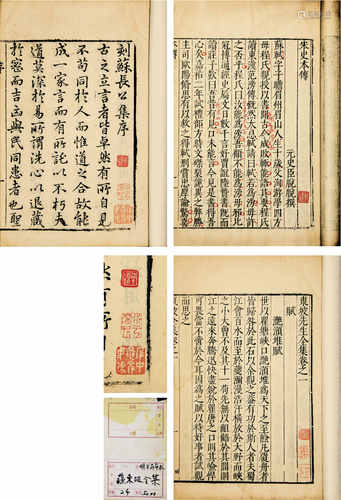 刻蘇長公集序
古之立言者皆卓然有所自見
不苟同於人而惟道之合故能
成一家言而有所託以不朽夫
道莫深於易所謂洗心以退藏
於密而吉凶與民同患者也聖
宋史本傳
元史臣脫脫撰
蘇軾字子瞻眉州眉山人生十年父洵游學四方
母程氏親授以書聞古今成敗輒能語其要程氏
讀東漢范滂傳慨然太息軾請曰軾若為滂母許
之否乎程氏曰汝能為滂吾顧不能為滂母邪比
冠博通經史屬文日數千言好賈誼陸贄書既而
讀莊子歎曰吾昔有見口未能言今見是書得吾
心矣嘉祐二年試禮部方時文磔裂詭異之弊勝
主司歐陽脩思有以救之得軾刑賞忠厚論驚喜
東坡先生全集卷之一
賦
灩澦堆賦
世以瞿塘峽口灩澦堆為天下之至險凡覆舟者
皆歸咎於此石以余觀之蓋有功於斯人者夫蜀
江會百水而至於夔瀰漫浩汗橫放於大野而峽
之小大曾不及其十一苟先無以齟齬於其間則
江之遠來奔騰迅快盡銳於瞿塘之口則其嶮悍
可畏當不啻於今耳因為之賦以待好事者試觀
蘇東坡全集
24